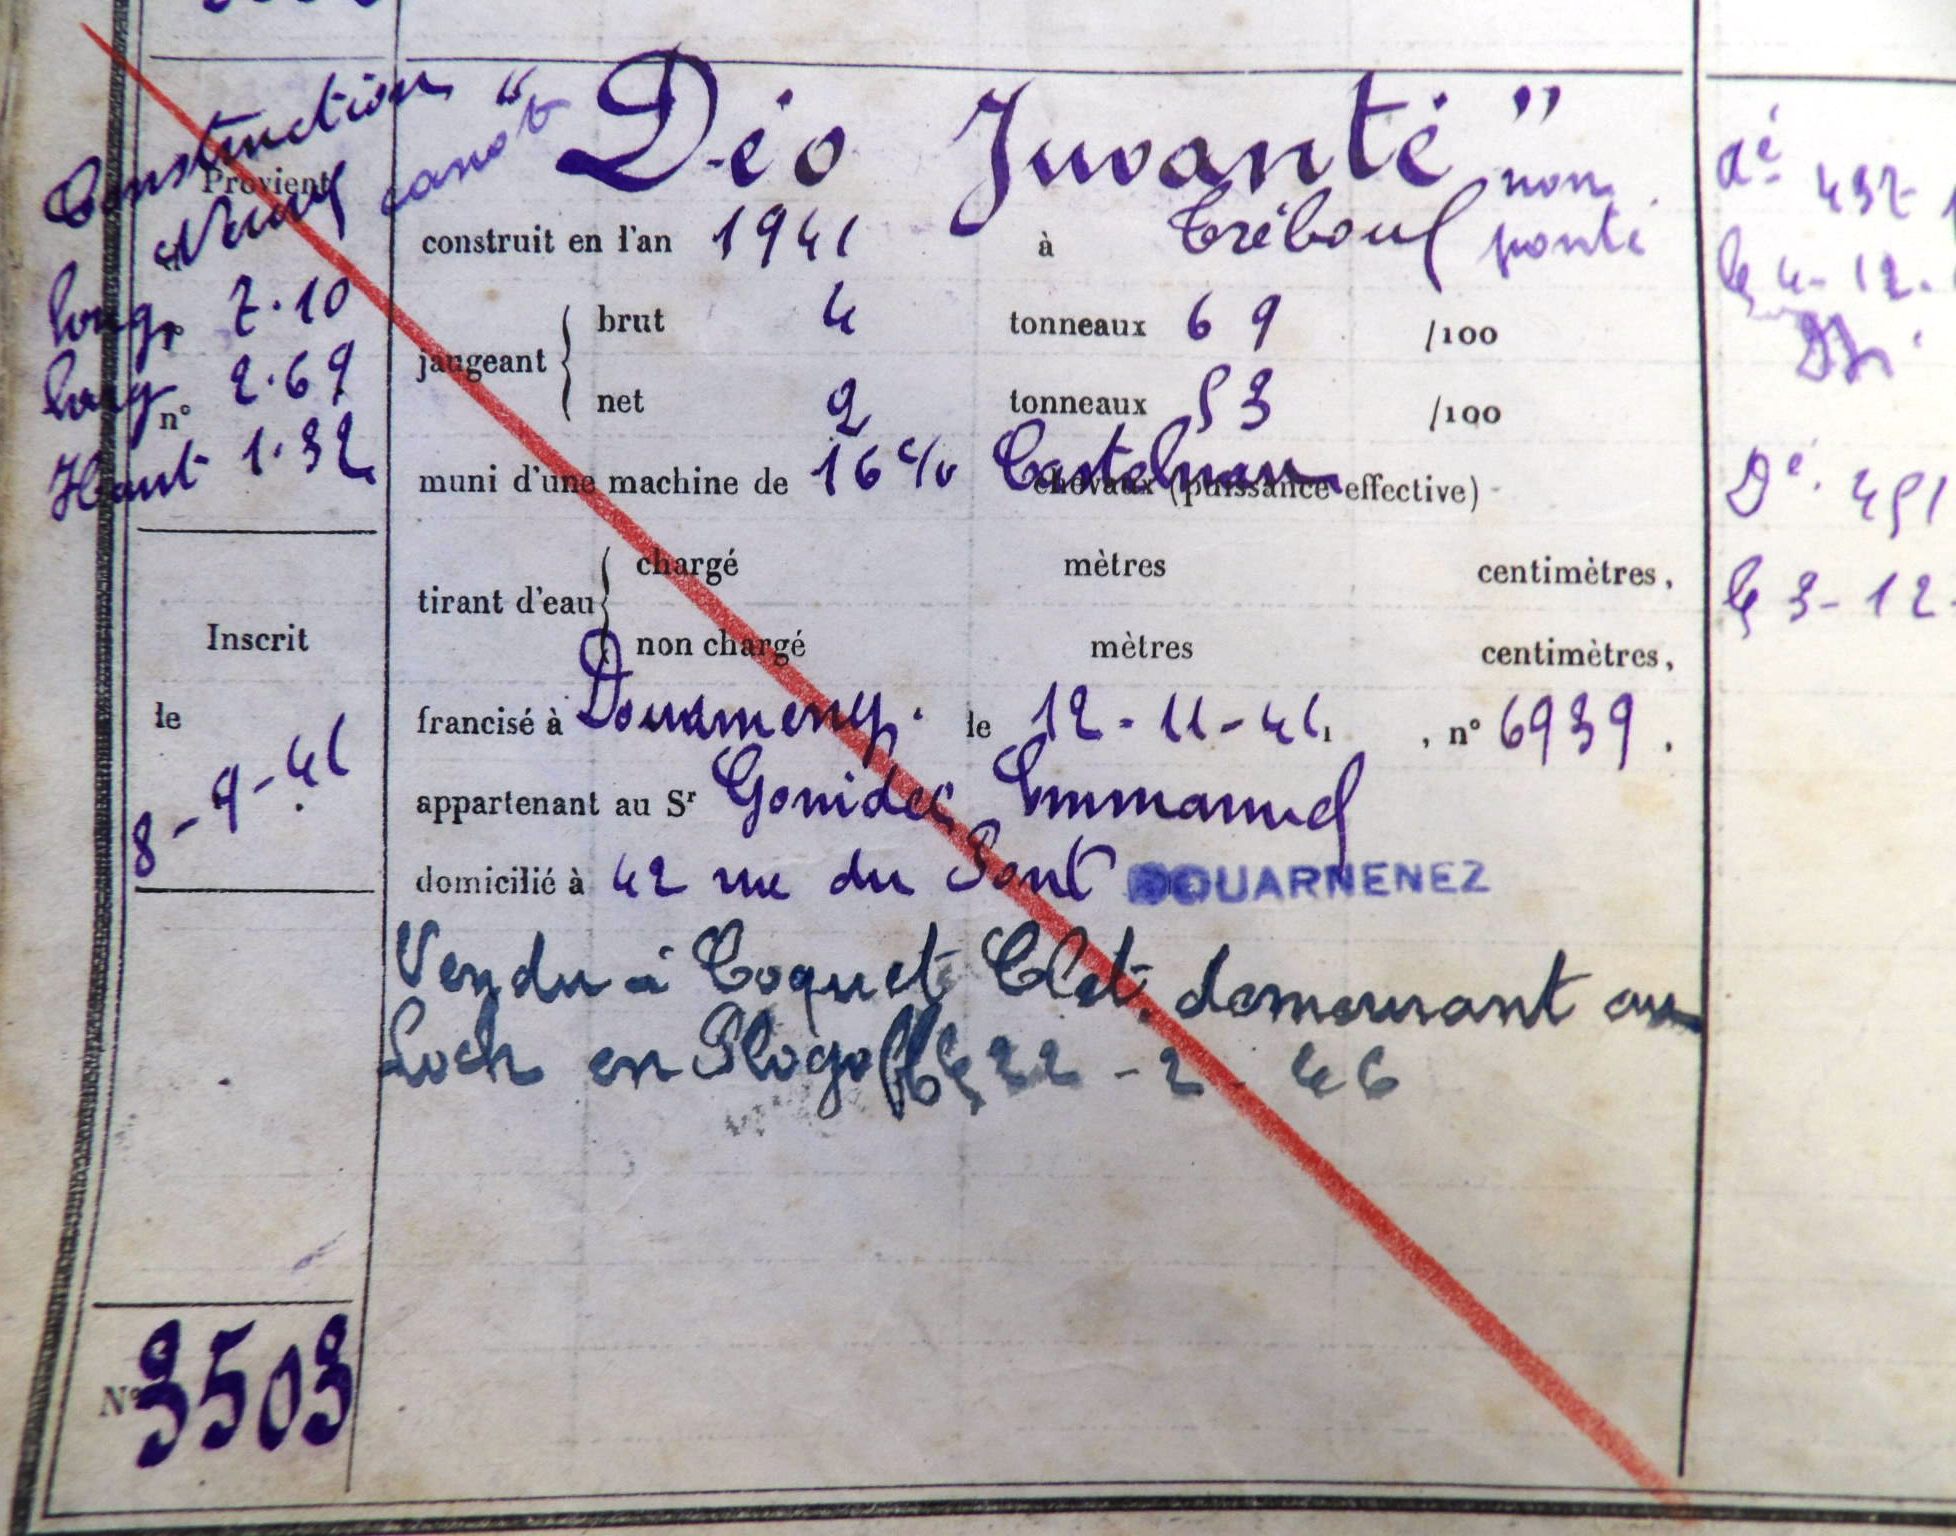 Construction
Provient
Neuve
Long. 7.10
n°
larg 2.69
n°
Haut 1.32
Inscrit
le
8-9-41
N° 3503
canot
" Déo Juvanté "
non
ponté
construit en l'an 1941 à Tréboul
jaugeant { brut 4 tonneaux 69 /100
net 2 tonneaux 53 /100
muni d'une machine de 16 c/v Castelnau chevaux (puissance effective)
tirant d'eau { chargé mètres centimètres,
non chargé mètres centimètres,
francisé à Douarnenez. le 12-11-41, , n° 6939.
appartenant au Sr Gonidec Emmanuel
domicilié à 42 rue du Pont DOUARNENEZ
Vendu à Coquet Clet. demeurant au
Loch en Plogoff le 22-2-46
Dé 492-
le 4-12.
Dé. 451
le 3-12-